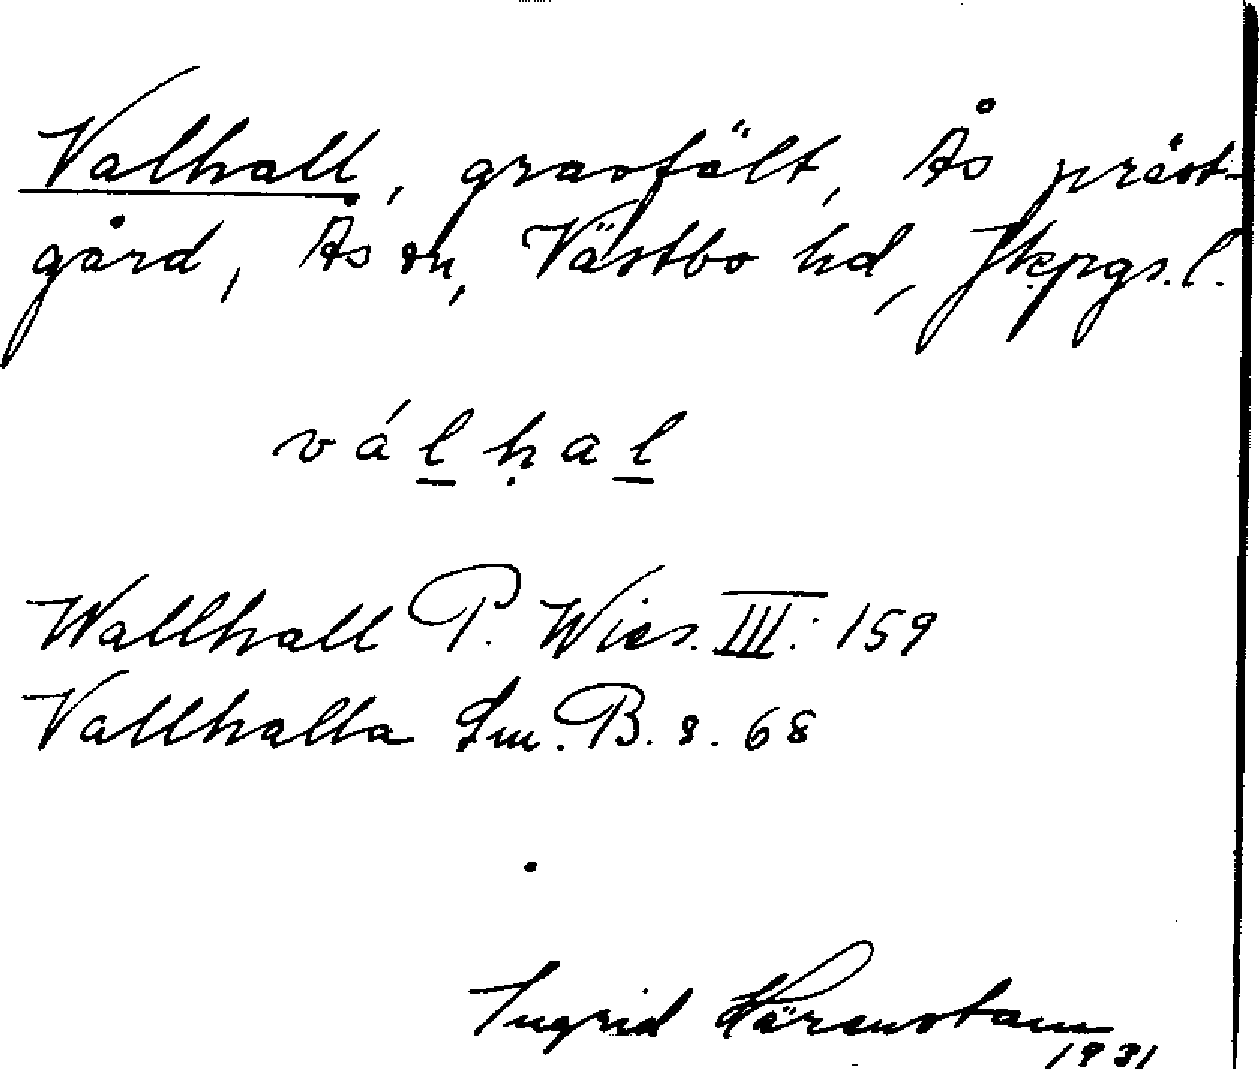 Valhall, gravfält, Ås präst-
gård, Ås sn, Västbo hd, Jkpgs. l.
vál̲ḥal̲
Wallhall P. Wies. III: 159
Vallhalla Sm. B. s. 68
Ingrid Härenstam
1931